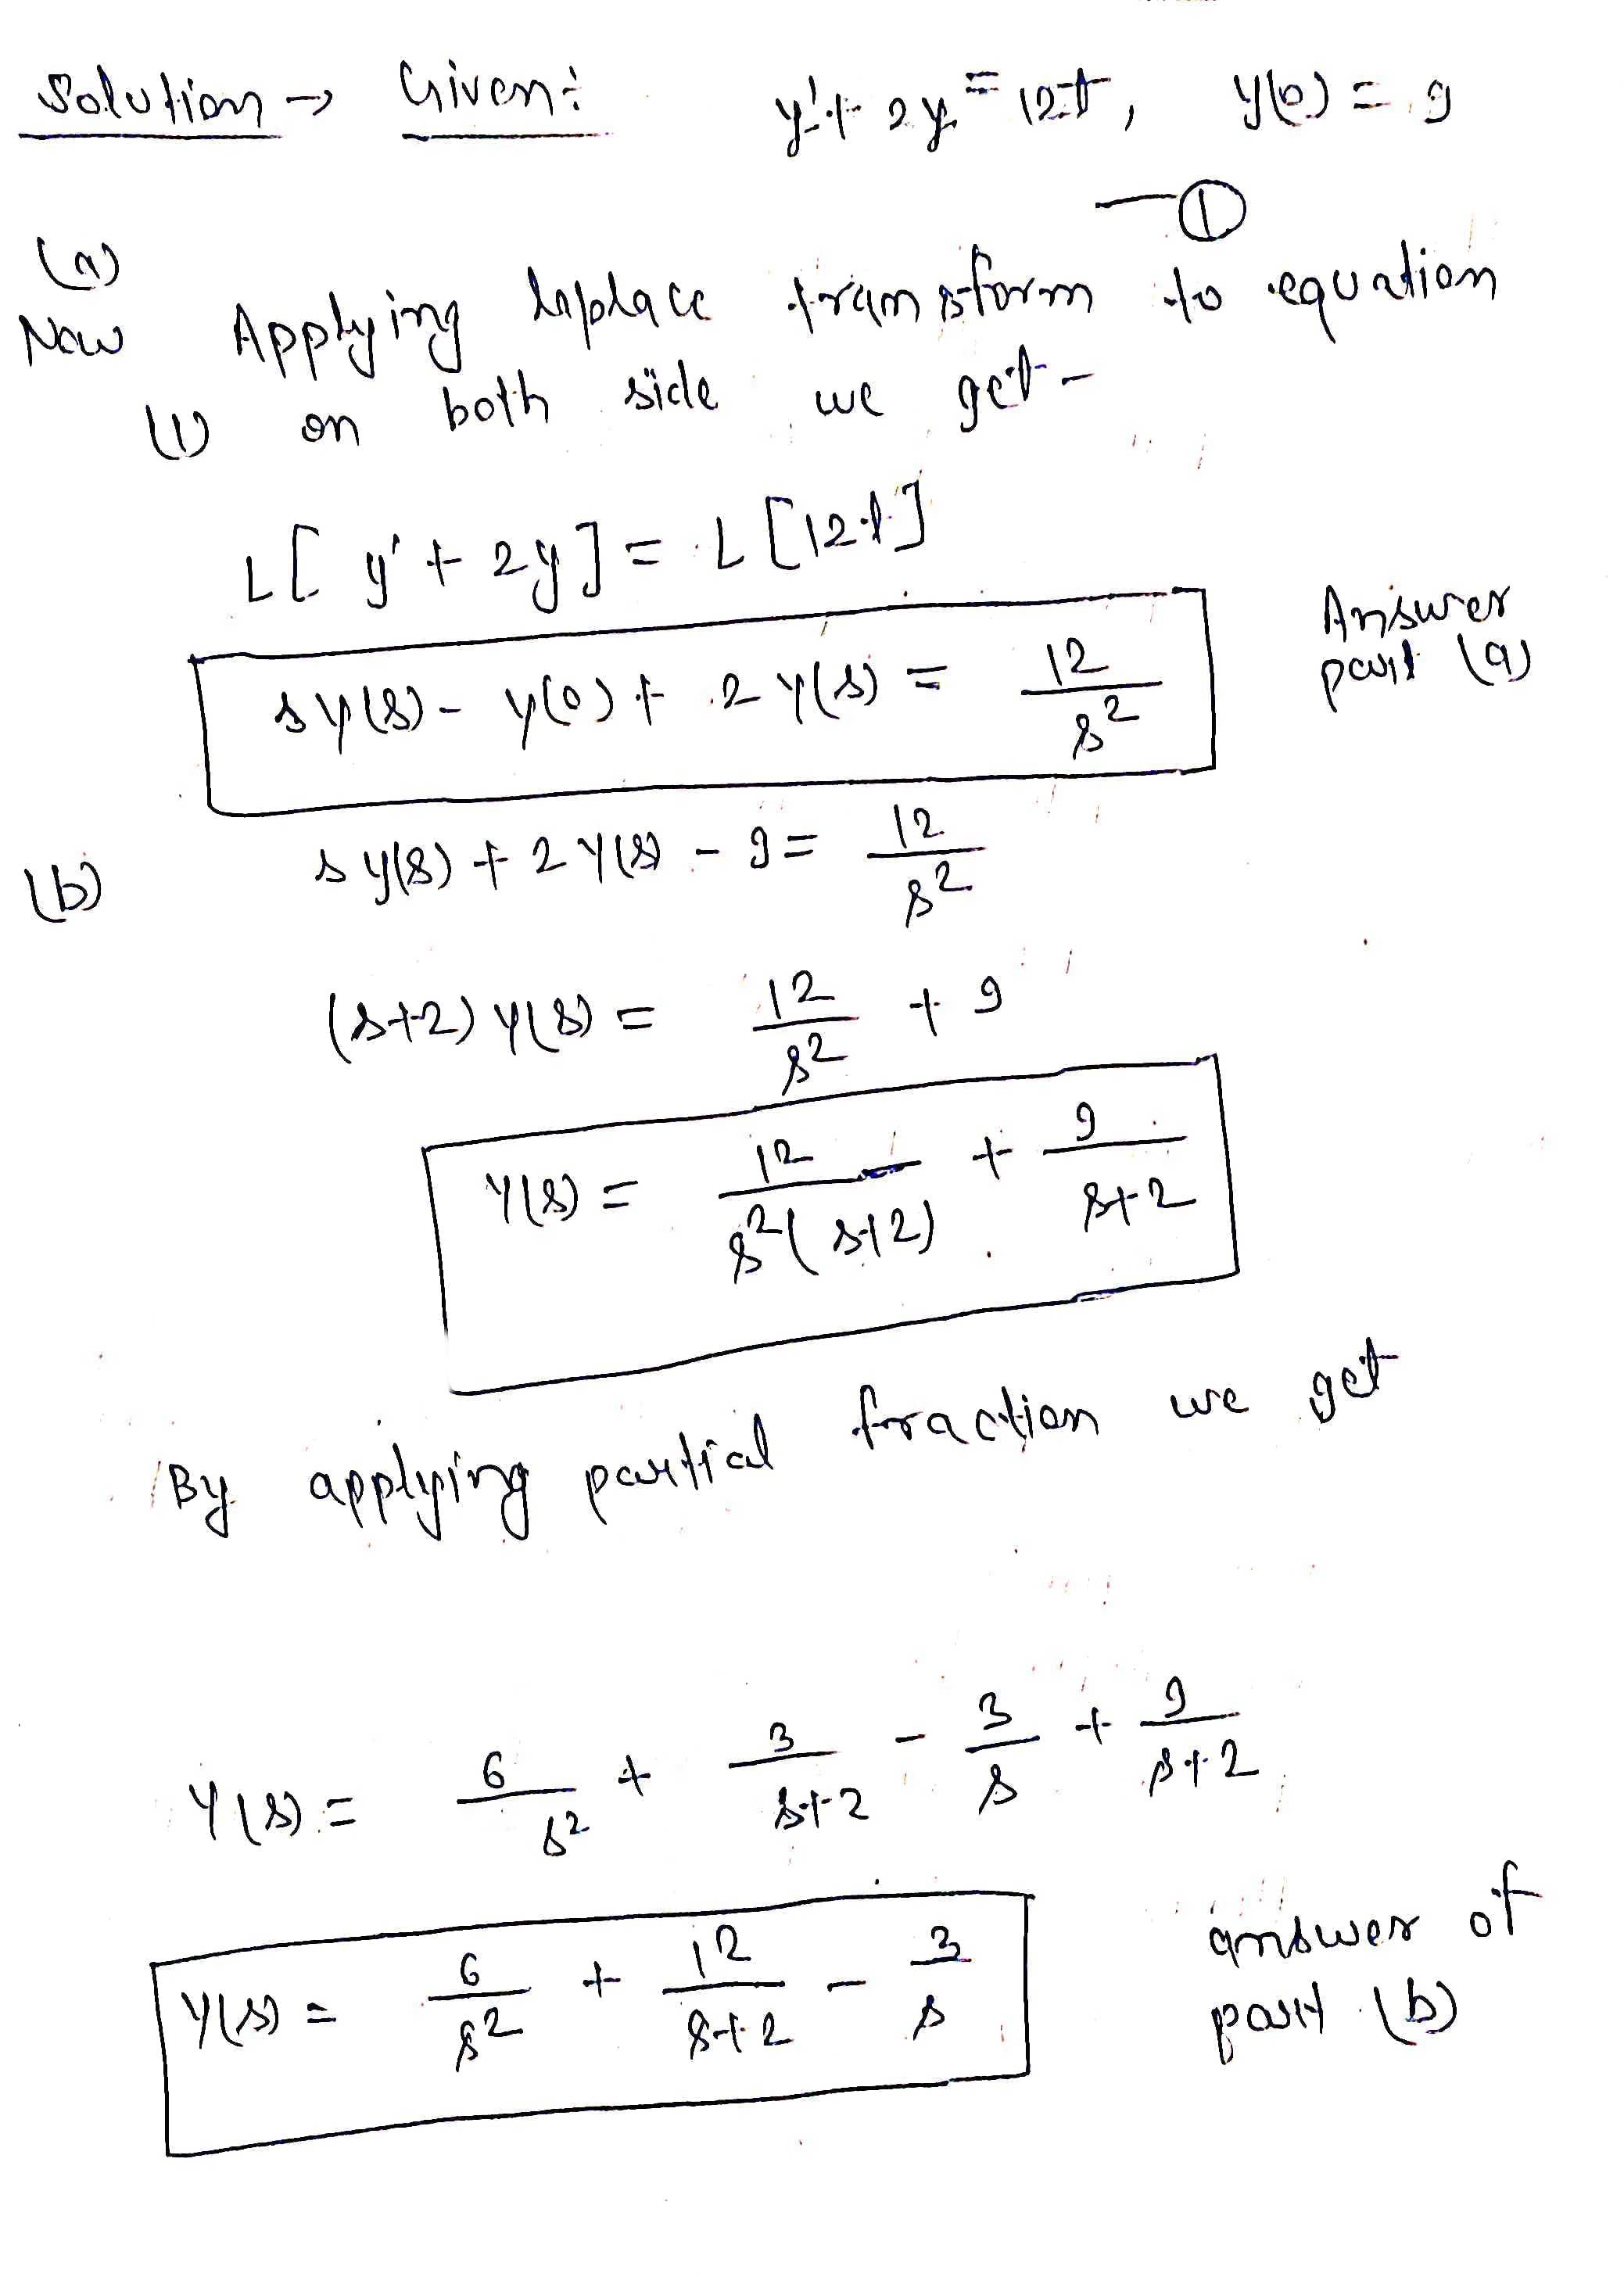 Solution → Given: y' + 2y = 12t, y(0) = 9
— ①
(a)
Now Applying laplace transform to equation
(1) on both side we get -
L[ y' + 2y ] = L [12t]
s y(s) - y(0) + 2 y(s) = 12/s² Answer part (a)
(b) s y(s) + 2 Y(s) - 9 = 12/s²
(s+2) y(s) = 12/s² + 9
Y(s) = 12/s²(s+2) + 9/s+2
By applying partial fraction we get
Y(s) = 6/s² + 3/s+2 - 3/s + 9/s+2
Y(s) = 6/s² + 12/s+2 - 3/s answer of part (b)